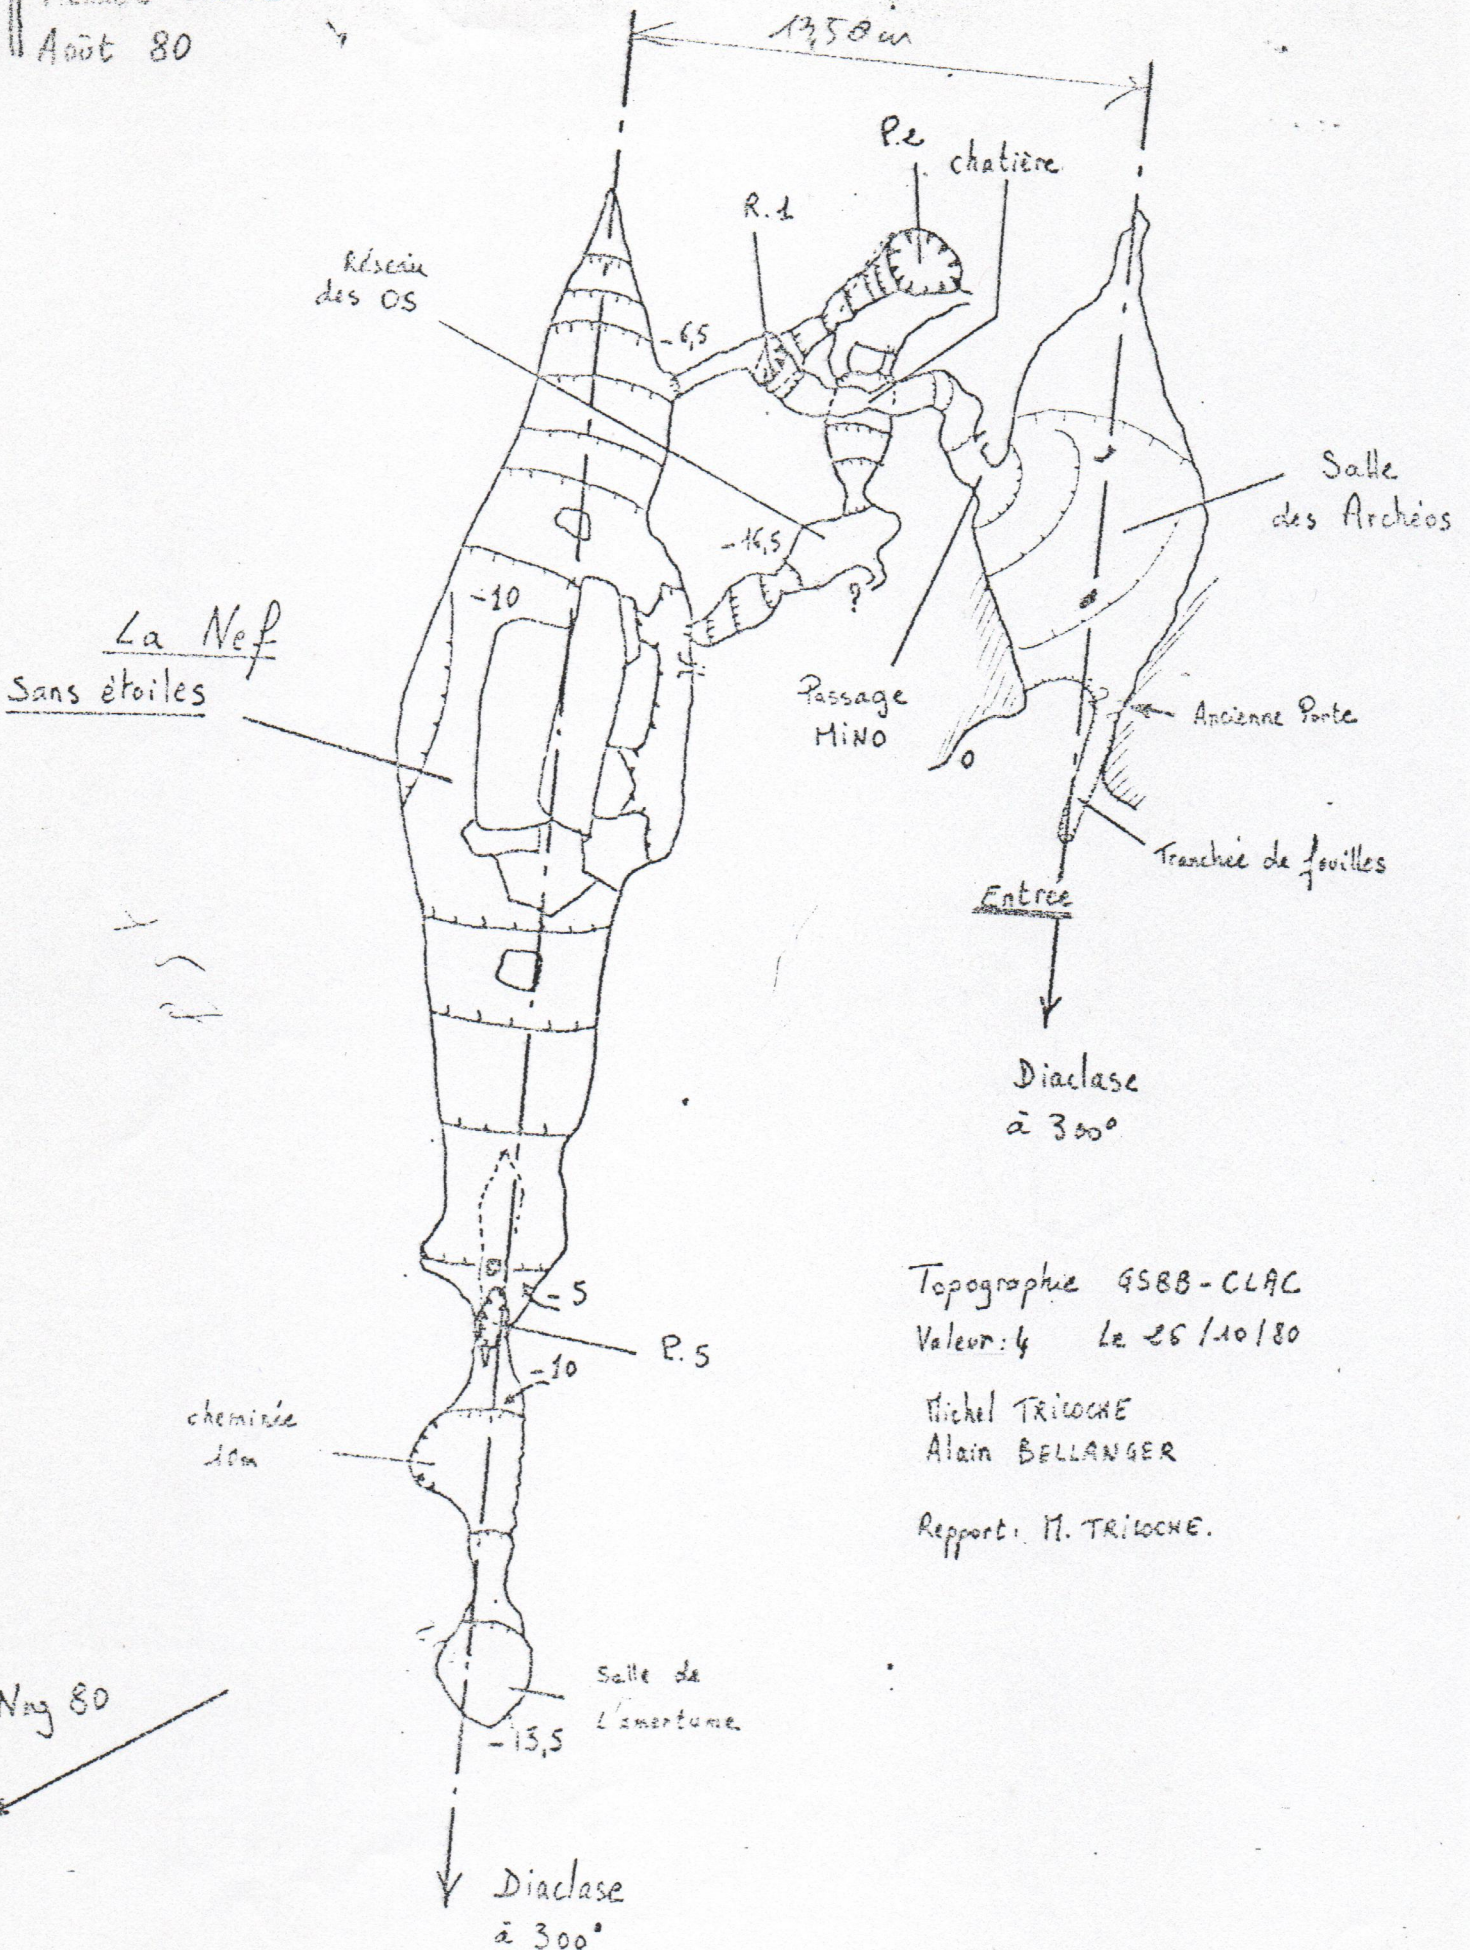 Août 80
13,50 m
P.2
chatière
R.1
Réseau
des OS
-6,5
Salle
des Archéos
-16,5
-10
?
La Nef
Sans étoiles
Passage
MINO
0
Ancienne Porte
Tranchée de fouilles
Entrée
Diaclase
à 300°
-5
P.5
-10
cheminée
10m
Topographie GSBB-CLAC
Valeur: 4 Le 26/10/80
Michel TRILOCHE
Alain BELLANGER
Repport: M. TRILOCHE.
Nmg 80
Salle de
L'amertume
-15,5
Diaclase
à 300°